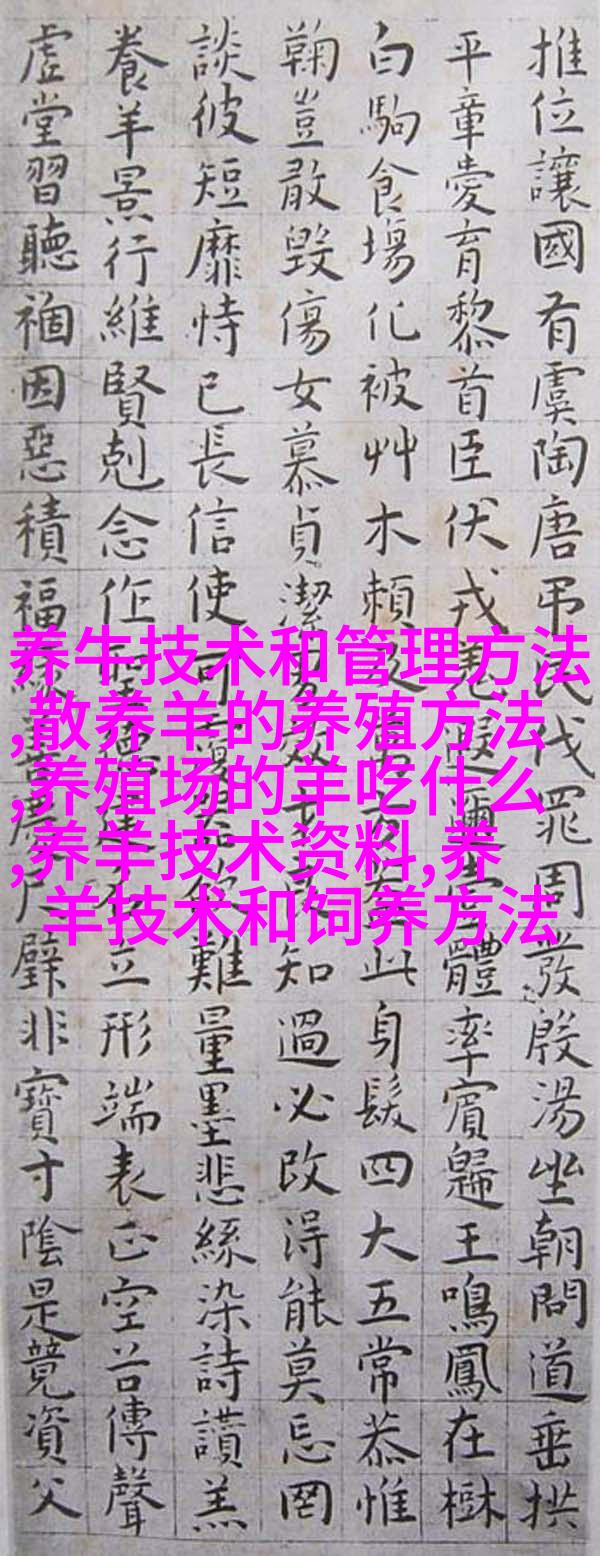 推位讓國有虞陶唐弔民伐罪周發殷湯坐朝問道垂拱
平章愛育黎首臣伏戎羌遐邇壹體率賓歸王鳴鳳在樹
白駒食場化被艸木賴及萬方蓋此身髮四大五常恭惟
鞠豈敢毀傷女慕貞潔男效才良知過必改得能莫忘罔
談彼短靡恃己長信使可覆器欲難量墨悲絲染詩讚羔
養羊景行維賢剋念作聖德建名立形端表正空谷傳聲
虛堂習聽禍因惡積福緣善慶尺璧非寶寸陰是競資父
养牛技术和管理方法
,散养羊的养殖方法
,养殖场的羊吃什么
,养羊技术资料,养
羊技术和饲养方法